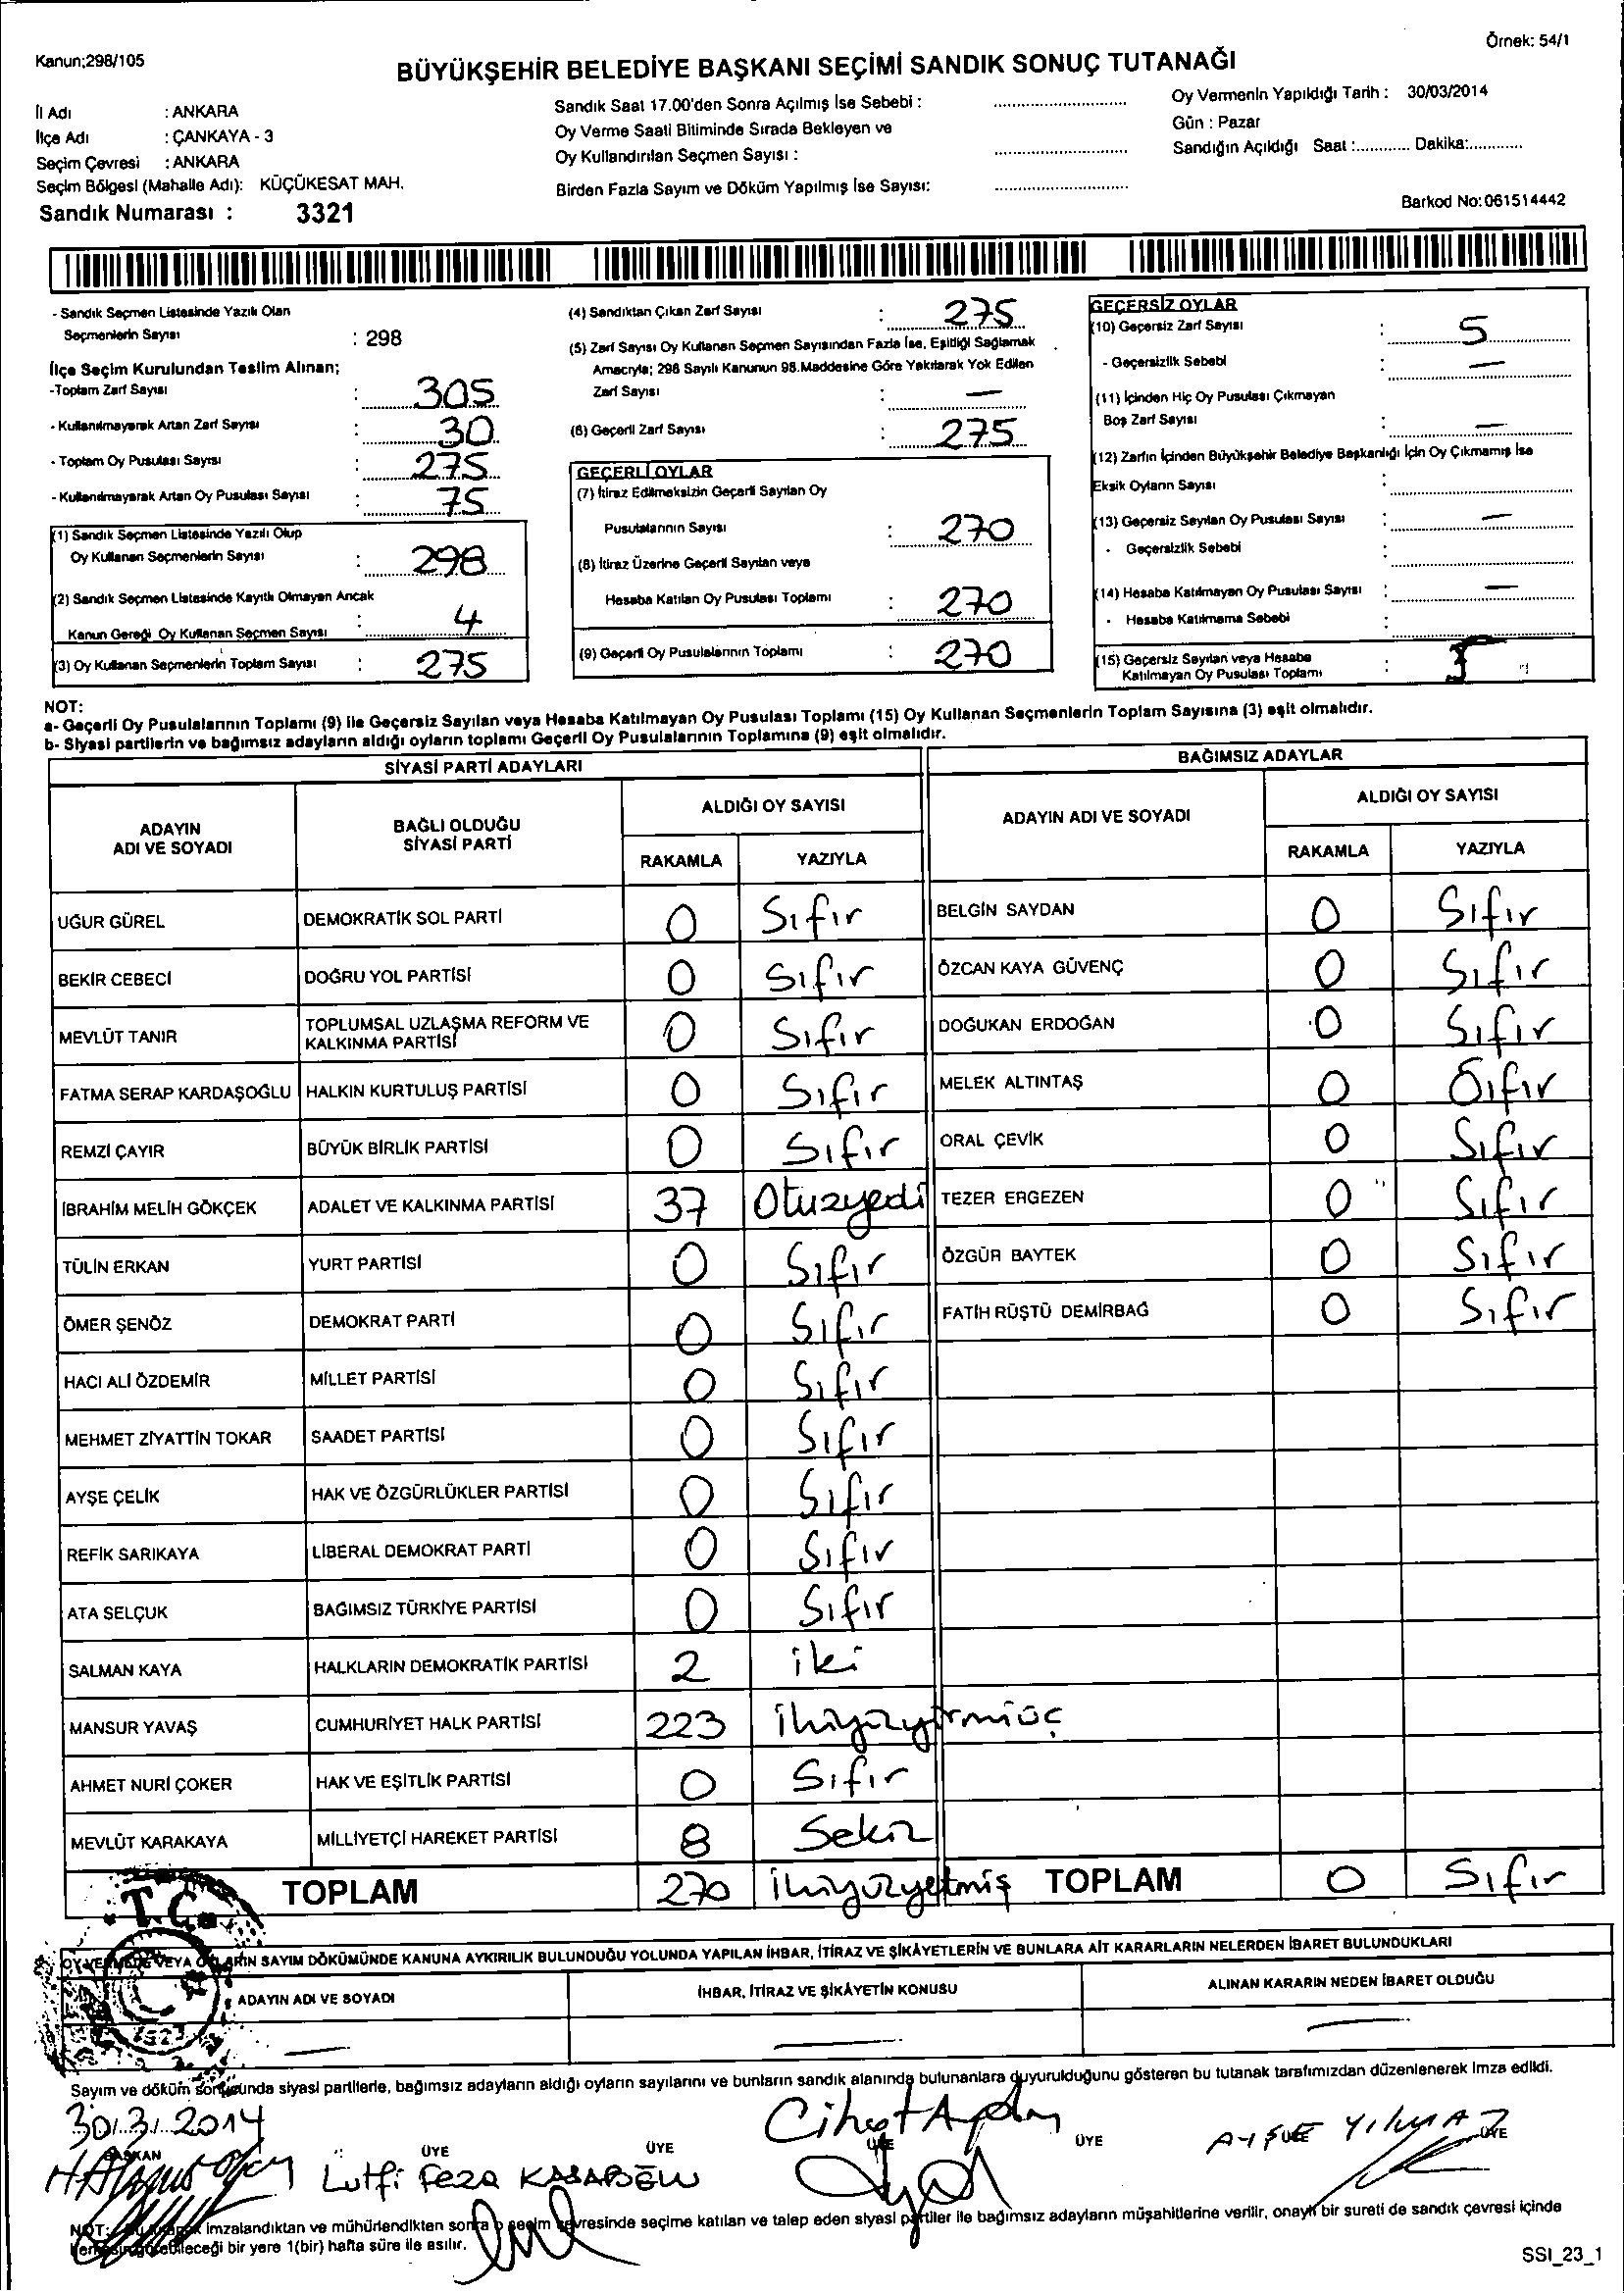 Kanun;298/105
Örnek: 54/1
BÜYÜKŞEHİR BELEDİYE BAŞKANI SEÇİMİ SANDIK SONUÇ TUTANAĞI
İl Adı : ANKARA
İlçe Adı : ÇANKAYA - 3
Seçim Çevresi : ANKARA
Seçim Bölgesi (Mahalle Adı): KÜÇÜKESAT MAH.
Sandık Numarası : 3321
Sandık Saat 17.00'den Sonra Açılmış İse Sebebi :
Oy Verme Saati Bitiminde Sırada Bekleyen ve
Oy Kullandırılan Seçmen Sayısı :
Birden Fazla Sayım ve Döküm Yapılmış İse Sayısı:
Oy Vermenin Yapıldığı Tarih : 30/03/2014
Gün : Pazar
Sandığın Açıldığı Saat :............ Dakika:............
Barkod No:061514442
- Sandık Seçmen Listesinde Yazılı Olan
Seçmenlerin Sayısı : 298
İlçe Seçim Kurulundan Teslim Alınan;
-Toplam Zarf Sayısı : 305
- Kullanılmayarak Artan Zarf Sayısı : 30
- Toplam Oy Pusulası Sayısı : 275
- Kullanılmayarak Artan Oy Pusulası Sayısı : 75
(1) Sandık Seçmen Listesinde Yazılı Olup
Oy Kullanan Seçmenlerin Sayısı : 298
(2) Sandık Seçmen Listesinde Kayıtlı Olmayan Ancak
Kanun Gereği Oy Kullanan Seçmen Sayısı : 4
(3) Oy Kullanan Seçmenlerin Toplam Sayısı : 275
(4) Sandıktan Çıkan Zarf Sayısı : 275
(5) Zarf Sayısı Oy Kullanan Seçmen Sayısından Fazla İse, Eşitliği Sağlamak
Amacıyla; 298 Sayılı Kanunun 98.Maddesine Göre Yakılarak Yok Edilen
Zarf Sayısı : —
(6) Geçerli Zarf Sayısı : 275
GEÇERLİ OYLAR
(7) İtiraz Edilmeksizin Geçerli Sayılan Oy
Pusulalarının Sayısı : 270
(8) İtiraz Üzerine Geçerli Sayılan veya
Hesaba Katılan Oy Pusulası Toplamı : 270
(9) Geçerli Oy Pusulalarının Toplamı : 270
GEÇERSİZ OYLAR
(10) Geçersiz Zarf Sayısı : 5
- Geçersizlik Sebebi : —
(11) İçinden Hiç Oy Pusulası Çıkmayan
Boş Zarf Sayısı : —
(12) Zarfın İçinden Büyükşehir Belediye Başkanlığı İçin Oy Çıkmamış İse
Eksik Oyların Sayısı :
(13) Geçersiz Sayılan Oy Pusulası Sayısı : —
- Geçersizlik Sebebi :
(14) Hesaba Katılmayan Oy Pusulası Sayısı : —
- Hesaba Katılmama Sebebi :
(15) Geçersiz Sayılan veya Hesaba
Katılmayan Oy Pusulası Toplamı : 5
NOT:
a- Geçerli Oy Pusulalarının Toplamı (9) ile Geçersiz Sayılan veya Hesaba Katılmayan Oy Pusulası Toplamı (15) Oy Kullanan Seçmenlerin Toplam Sayısına (3) eşit olmalıdır.
b- Siyasi partilerin ve bağımsız adayların aldığı oyların toplamı Geçerli Oy Pusulalarının Toplamına (9) eşit olmalıdır.
SİYASİ PARTİ ADAYLARI
BAĞIMSIZ ADAYLAR
ADAYIN ADI VE SOYADI
BAĞLI OLDUĞU SİYASİ PARTİ
ALDIĞI OY SAYISI
RAKAMLA YAZIYLA
ADAYIN ADI VE SOYADI
ALDIĞI OY SAYISI
RAKAMLA YAZIYLA
UĞUR GÜREL DEMOKRATİK SOL PARTİ 0 Sıfır BELGİN SAYDAN 0 Sıfır
BEKİR CEBECİ DOĞRU YOL PARTİSİ 0 Sıfır ÖZCAN KAYA GÜVENÇ 0 Sıfır
MEVLÜT TANIR TOPLUMSAL UZLAŞMA REFORM VE KALKINMA PARTİSİ 0 Sıfır DOĞUKAN ERDOĞAN 0 Sıfır
FATMA SERAP KARDAŞOĞLU HALKIN KURTULUŞ PARTİSİ 0 Sıfır MELEK ALTINTAŞ 0 Sıfır
REMZİ ÇAYIR BÜYÜK BİRLİK PARTİSİ 0 Sıfır ORAL ÇEVİK 0 Sıfır
İBRAHİM MELİH GÖKÇEK ADALET VE KALKINMA PARTİSİ 37 Otuzyedi TEZER ERGEZEN 0 Sıfır
TÜLİN ERKAN YURT PARTİSİ 0 Sıfır ÖZGÜR BAYTEK 0 Sıfır
ÖMER ŞENÖZ DEMOKRAT PARTİ 0 Sıfır FATİH RÜŞTÜ DEMİRBAĞ 0 Sıfır
HACI ALİ ÖZDEMİR MİLLET PARTİSİ 0 Sıfır
MEHMET ZİYATTİN TOKAR SAADET PARTİSİ 0 Sıfır
AYŞE ÇELİK HAK VE ÖZGÜRLÜKLER PARTİSİ 0 Sıfır
REFİK SARIKAYA LİBERAL DEMOKRAT PARTİ 0 Sıfır
ATA SELÇUK BAĞIMSIZ TÜRKİYE PARTİSİ 0 Sıfır
SALMAN KAYA HALKLARIN DEMOKRATİK PARTİSİ 2 iki
MANSUR YAVAŞ CUMHURİYET HALK PARTİSİ 223 ikiyüzyirmiüç
AHMET NURİ ÇOKER HAK VE EŞİTLİK PARTİSİ 0 Sıfır
MEVLÜT KARAKAYA MİLLİYETÇİ HAREKET PARTİSİ 8 Sekiz
TOPLAM 270 ikiyüzyetmiş TOPLAM 0 Sıfır
T.C.
OY VERMEDE VEYA OYLARIN SAYIM DÖKÜMÜNDE KANUNA AYKIRILIK BULUNDUĞU YOLUNDA YAPILAN İHBAR, İTİRAZ VE ŞİKÂYETLERİN VE BUNLARA AİT KARARLARIN NELERDEN İBARET BULUNDUKLARI
ADAYIN ADI VE SOYADI İHBAR, İTİRAZ VE ŞİKÂYETİN KONUSU ALINAN KARARIN NEDEN İBARET OLDUĞU
— — —
Sayım ve döküm sonucunda siyasi partilerle, bağımsız adayların aldığı oyların sayılarını ve bunların sandık alanında bulunanlara duyurulduğunu gösteren bu tutanak tarafımızdan düzenlenerek imza edildi.
30.3.2014
BAŞKAN ÜYE ÜYE ÜYE ÜYE ÜYE
Lutfi Feza KASAPOĞLU
Cihat Aydın
AYŞE YILMAZ
NOT: Bu tutanak imzalandıktan ve mühürlendikten sonra o seçim çevresinde seçime katılan ve talep eden siyasi partiler ile bağımsız adayların müşahitlerine verilir, onaylı bir sureti de sandık çevresi içinde
herkesin görebileceği bir yere 1(bir) hafta süre ile asılır.
SSI_23_1